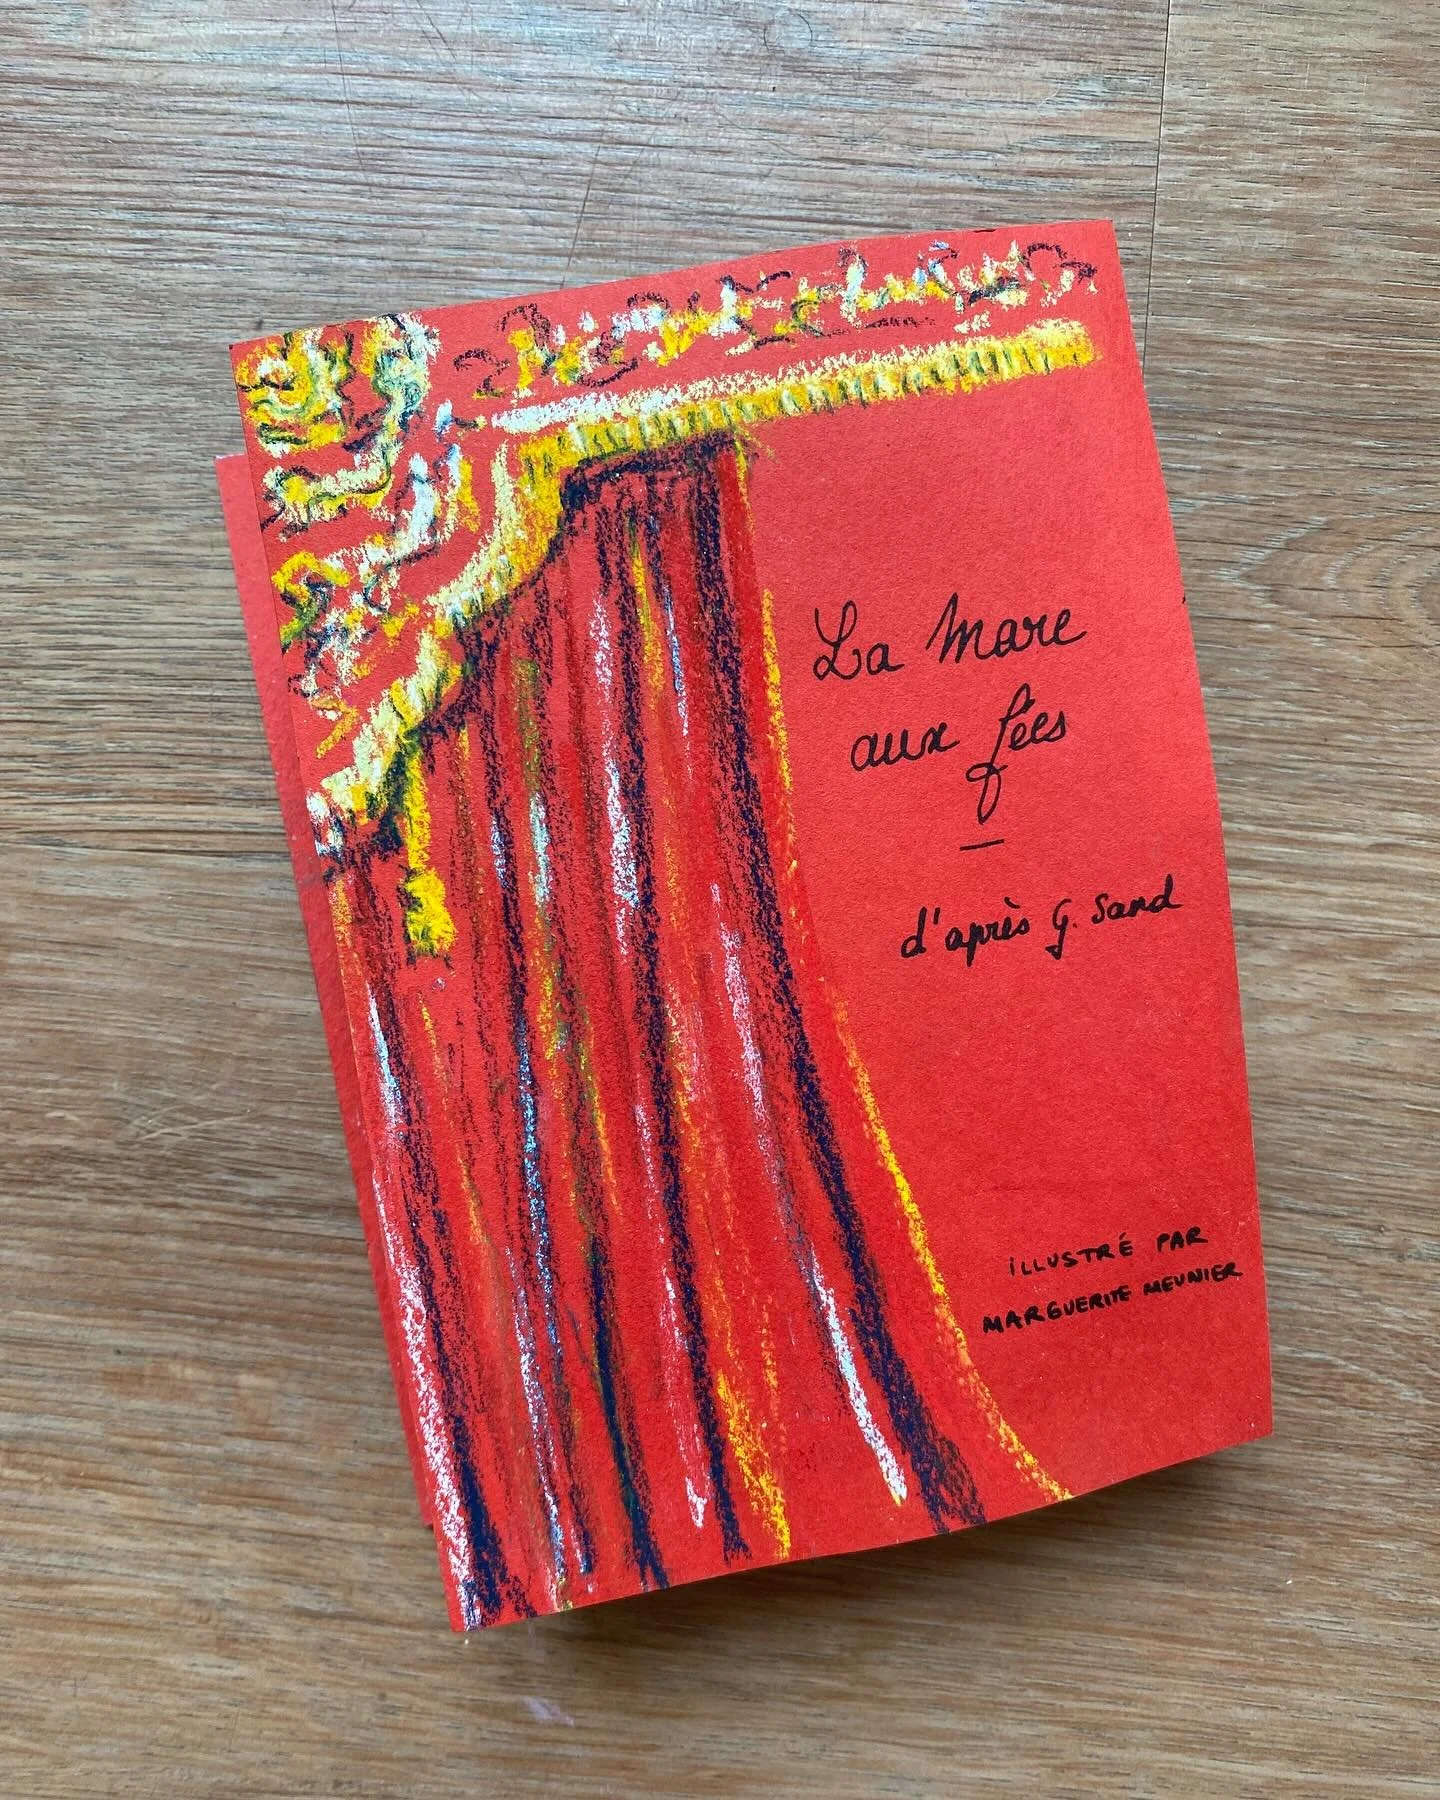 La Mare
aux fées
—
d'après G. Sand
iLLUSTRÉ PAR
MARGUERITE MEUNIER